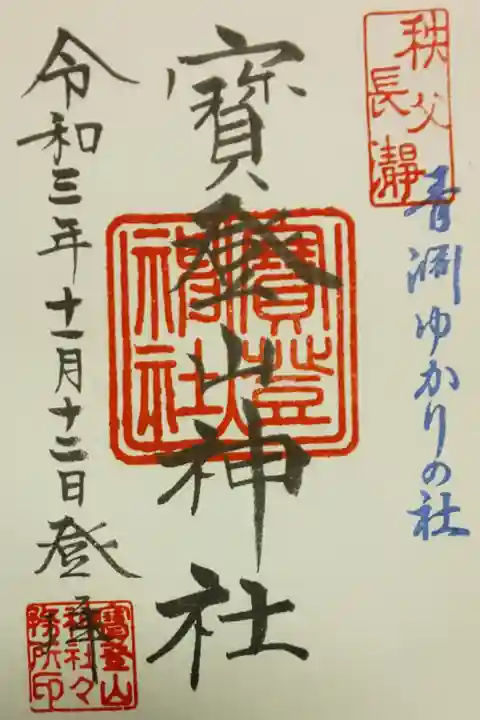 秩父
長瀞
青淵ゆかりの社
寳登山神社
寳登山神社
令和三年十一月十二日登拝
寳登山
神社々
務所印